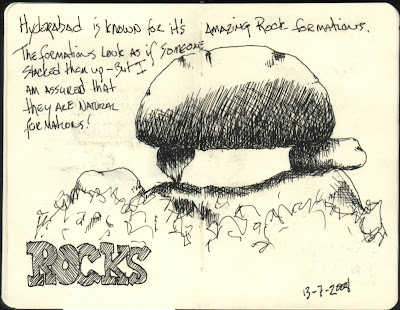 Hyderabad is known for it's amazing Rock formations.
The formations look as if someone
stacked them up - But I
am assured that
they are natural
formations!
ROCKS
13-7-2008